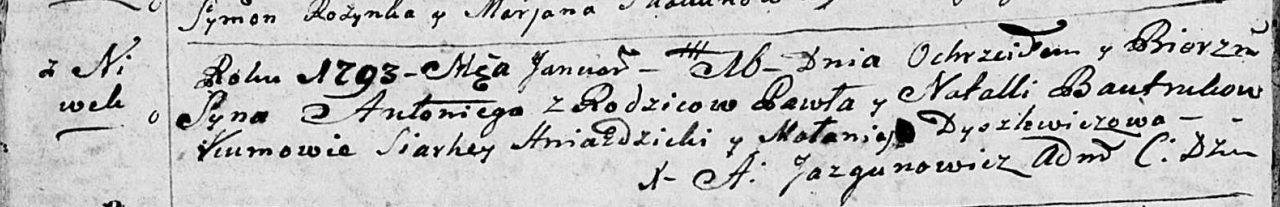 Symon Rożynka y Marjana
z Ni
wek
Roku 1793 – Męa Januar – 16 – Dnia Ochrzciłem y Bierzm
Syna Antoniego z Rodzicow Pawła y Natalli Bautrukow
Kumowie Siarhey Hniazdzicki y Małanija Dyszkwiczowa –
X A: Jazgunowicz Adm C: Dźw